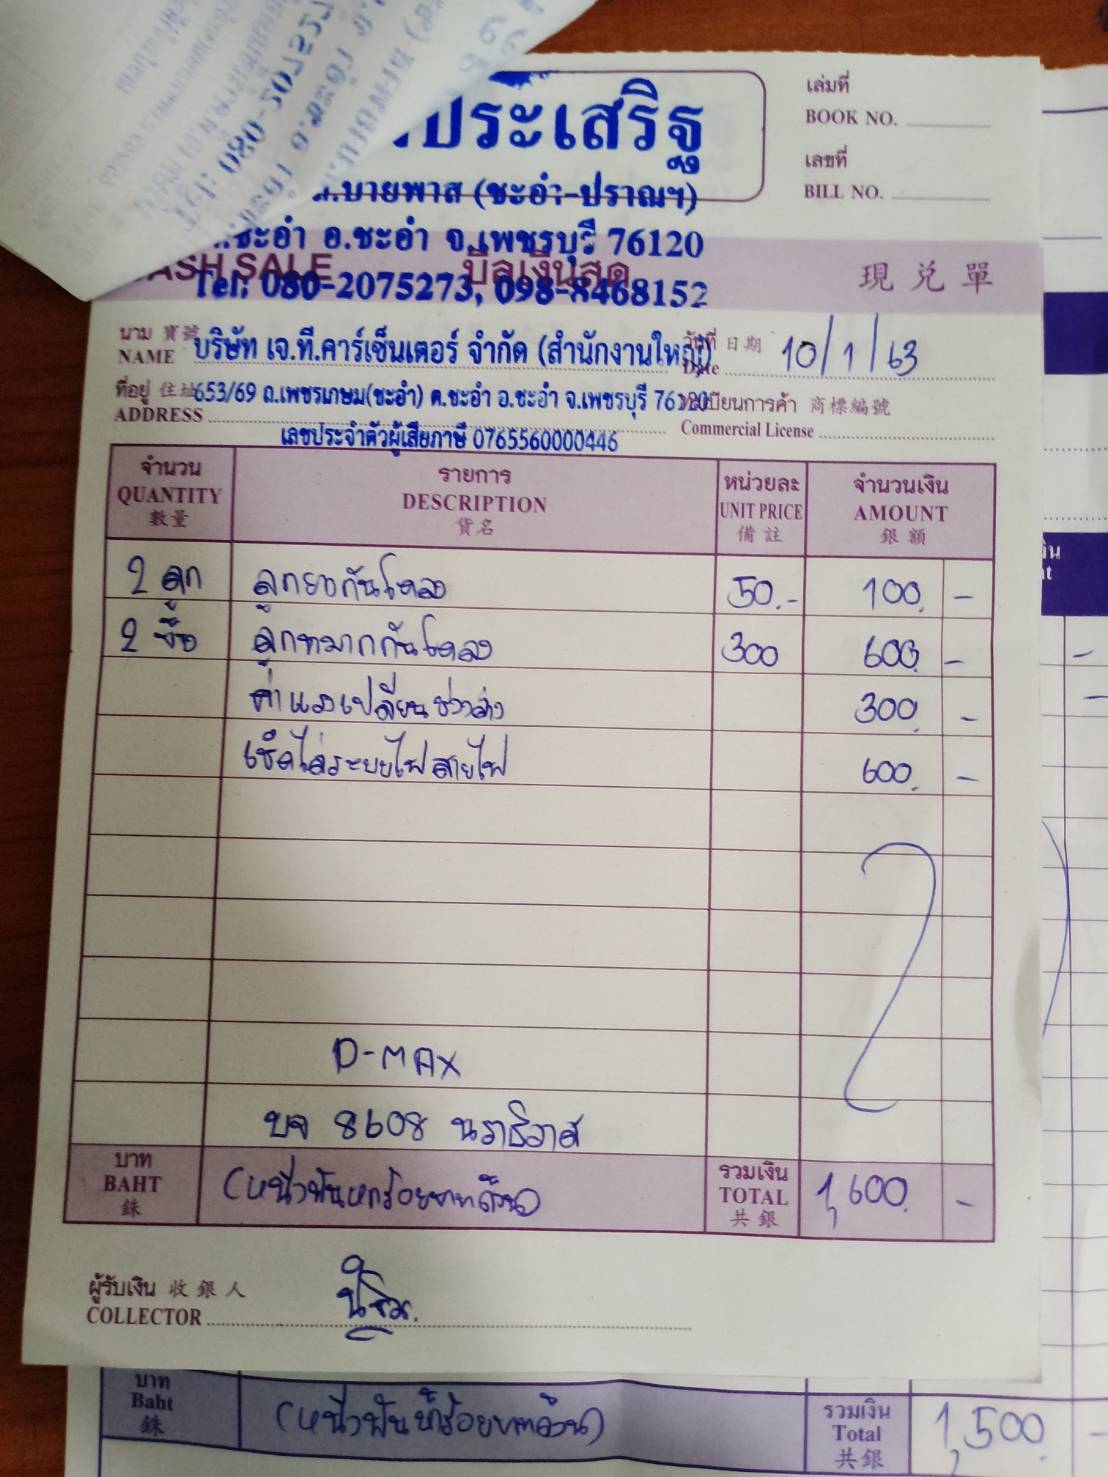 ประเสริฐ
เล่มที่
BOOK NO.
เลขที่
BILL NO.
บายพาส (ชะอำ-ปราณฯ)
ชะอำ อ.ชะอำ จ.เพชรบุรี 76120
CASH SALE บิลเงินสด 現兑單
Tel. 080-2075273, 098-8468152
นาม 寶號 บริษัท เจ.ที.คาร์เซ็นเตอร์ จำกัด (สำนักงานใหญ่) วันที่ 日期 10/1/63
NAME Date
ที่อยู่ 住址 653/69 ถ.เพชรเกษม(ชะอำ) ต.ชะอำ อ.ชะอำ จ.เพชรบุรี 76120 ทะเบียนการค้า 商標編號
ADDRESS Commercial License
เลขประจำตัวผู้เสียภาษี 0765560000446
จำนวน รายการ หน่วยละ จำนวนเงิน
QUANTITY DESCRIPTION UNIT PRICE AMOUNT
數量 貨名 備註 銀額
2 ลูก ลูกยางกันโคลง 50.- 100. -
2 ชิ้น ลูกหมากกันโคลง 300 600. -
ค่าแรงเปลี่ยนช่วงล่าง 300. -
เช็คไล่ระบบไฟสายไฟ 600. -
D-MAX
บจ 8608 นราธิวาส
บาท รวมเงิน
BAHT (หนึ่งพันหกร้อยบาทถ้วน) TOTAL 1,600. -
銖 共銀
ผู้รับเงิน 收銀人
COLLECTOR
บาท
Baht (หนึ่งพันห้าร้อยบาทถ้วน) รวมเงิน 1,500 -
銖 Total
共銀